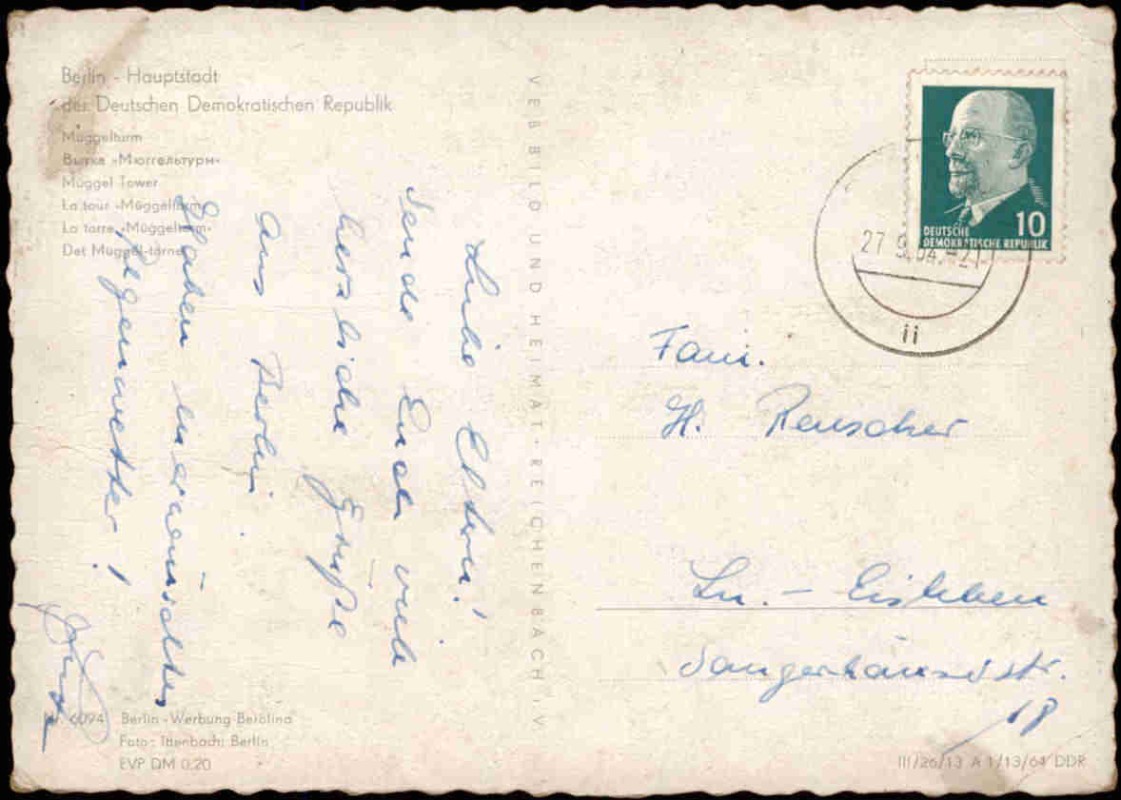 Berlin - Hauptstadt
der Deutschen Demokratischen Republik
Müggelturm
Вышка «Мюггельтурм»
Müggel Tower
La tour «Müggelturm»
La torre «Müggelturm»
Det Müggel-tårnet
Liebe Eltern!
sende Euch viele
herzliche Grüße
aus Berlin
Haben unerwünschtes
Regenwetter!
Nr. 6094 Berlin-Werbung Berolina
Foto: Idenbach, Berlin
EVP DM 0.20
VEB BILD UND HEIMAT · REICHENBACH i. V.
DEUTSCHE
DEMOKRATISCHE REPUBLIK
10
27 9.64.-21
ii
Fam.
H. Renscher
Lu. - Eisleben
Sangerhäuserstr.
18
III/26/13 A 1/13/64 DDR